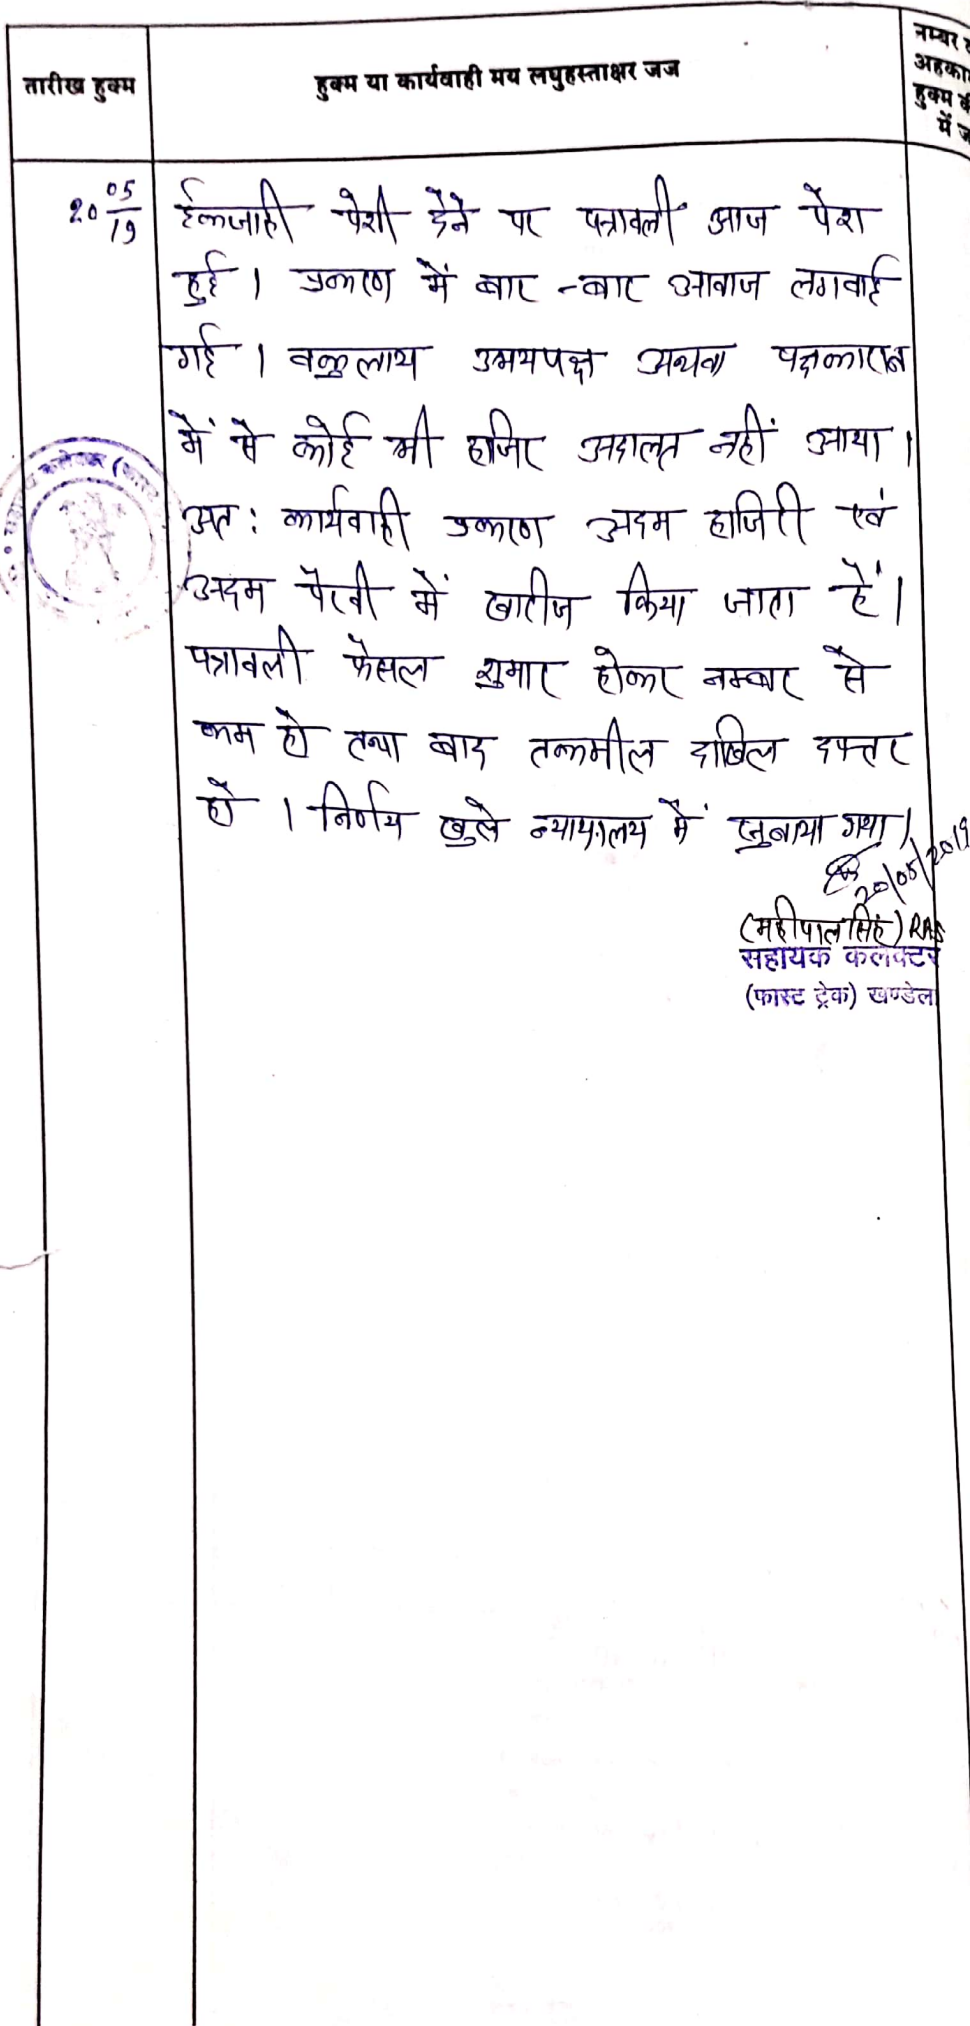 तारीख हुक्म
हुक्म या कार्यवाही मय लघुहस्ताक्षर जज
नम्बर
अहका
हुक्म
में
20 05/19
पेशी देने पर पत्रावली आज पेश
हुई । प्रकरण में बार - बार आवाज लगवाई
गई । वकुलाय उभयपक्ष अथवा पक्षकारान
में से कोई भी हाजिर अदालत नहीं आया ।
अत : कार्यवाही प्रकरण अदम हाजिरी एवं
अदम पैरवी में खारीज किया जाता हैं ।
पत्रावली फैसल शुमार होकर नम्बर से
कम हो तथा बाद तकमील दाखिल दफ्तर
हो । निर्णय खुले न्यायालय में सुनाया गया ।
20/05/2019
(महीपाल सिंह) RAS
सहायक कलक्टर
(फास्ट ट्रेक) खण्डेला